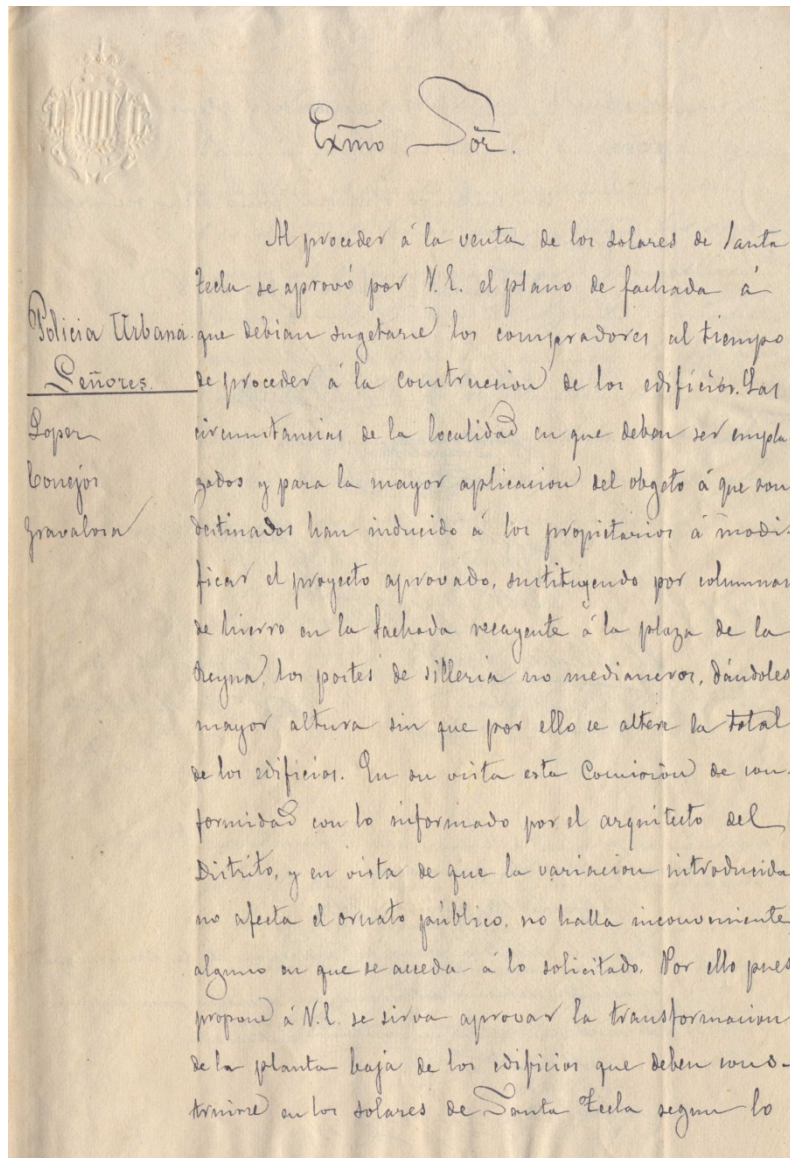 Exmo Sor.
Al proceder á la venta de los solares de Santa
Tecla se aprovó por V. E. el plano de fachada á
que debian sugetarse los compradores al tiempo
de proceder á la construccion de los edificios. Las
circunstancias de la localidad en que deben ser empla
zados y para la mayor aplicacion del obgeto á que son
destinados han inducido á los propietarios á modi-
ficar el proyecto aprovado, sustituyendo por columnas
de hierro en la fachada recayente á la plaza de la
Reyna, los postes de silleria no medianeros, dándoles
mayor altura sin que por ello se altere la total
de los edificios. En su vista esta Comision de con-
formidad con lo informado por el arquitecto del
Distrito, y en vista de que la variacion introducida
no afecta el ornato público, no halla inconveniente
alguno en que se acceda á lo solicitado. Por ello pues
propone á V. E. se sirva aprovar la transformacion
de la planta baja de los edificios que deben cons-
truirse en los solares de Santa Tecla segun lo
Policia Urbana
Señores.
Lopez
Conejos
Gravalosa